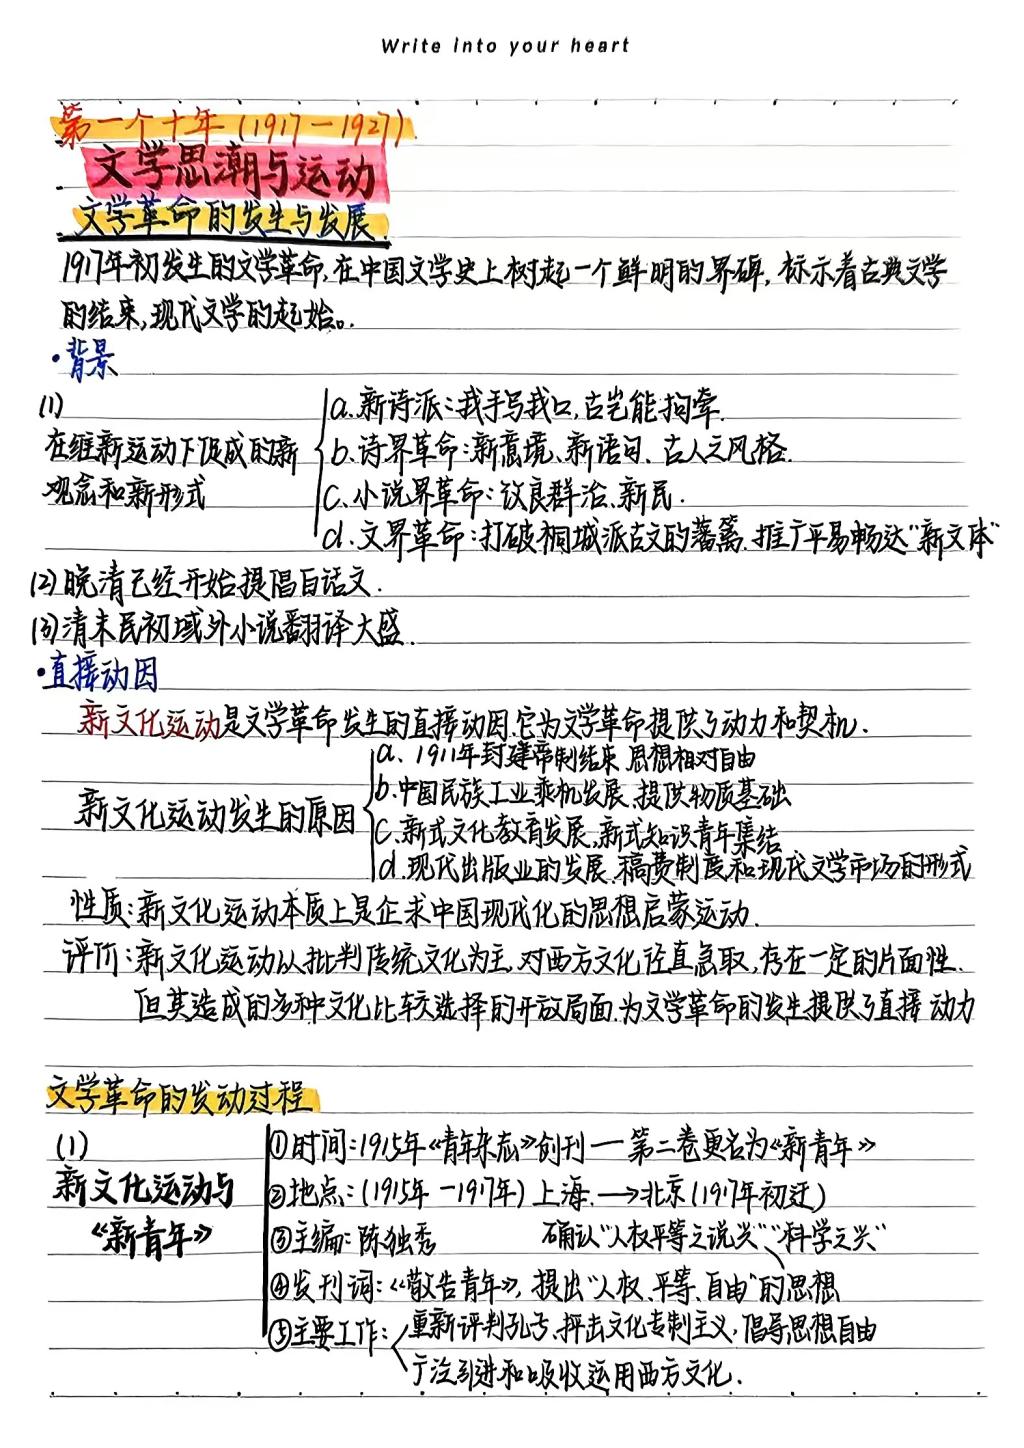 Write into your heart
第一个十年(1917—1927)
文学思潮与运动
文学革命的发生与发展
1917年初发生的文学革命,在中国文学史上树起一个鲜明的界碑,标示着古典文学
的结束,现代文学的起始。
·背景
(1)
在维新运动下促成的新
观念和新形式
a.新诗派:我手写我口,古岂能拘牵.
b.诗界革命:新意境、新语句、古人之风格.
c.小说界革命:改良群治、新民.
d.文界革命:打破桐城派古文的藩篱.推广平易畅达“新文体”
(2)晚清已经开始提倡白话文.
(3)清末民初域外小说翻译大盛.
·直接动因
新文化运动是文学革命发生的直接动因.它为文学革命提供了动力和契机.
新文化运动发生的原因
a.1911年封建帝制结束 思想相对自由
b.中国民族工业乘机发展,提供物质基础
c.新式文化教育发展,新式知识青年集结
d.现代出版业的发展.稿费制度和现代文学市场的形式
性质:新文化运动本质上是企求中国现代化的思想启蒙运动.
评价:新文化运动以批判传统文化为主,对西方文化径直急取,存在一定的片面性.
但其造成的多种文化比较选择的开放局面.为文学革命的发生提供了直接动力
文学革命的发动过程
(1)
新文化运动与
《新青年》
①时间:1915年《青年杂志》创刊—第二卷更名为《新青年》
②地点:(1915年-1917年)上海.→北京(1917年初迁)
③主编:陈独秀 确认“人权平等之说兴”“科学之兴”
④发刊词:《敬告青年》,提出“人权、平等、自由”的思想
⑤主要工作:重新评判孔子、抨击文化专制主义,倡导思想自由
广泛引进和吸收运用西方文化.